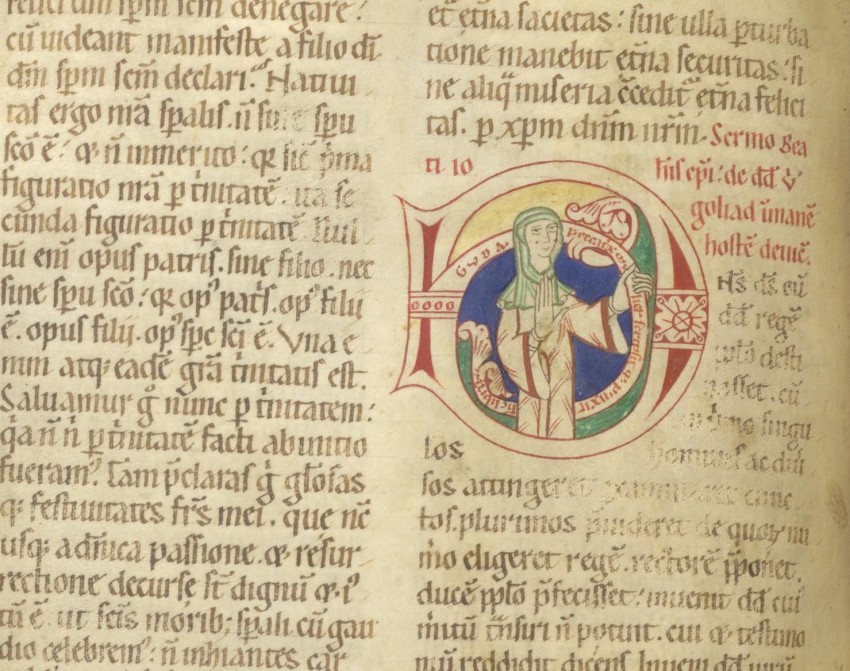 cū uideant manifeste a filio dī
dm̄ spm̄ scm̄ declari. Natiui
tas ergo nr̄a sp̄alis. n̄ sine sp̄u
scō ē. q; n̄ inmerito: qr sic p̄ma
figuratio nr̄a p t̓nitatē. ita se
cunda figuratio p t̓nitatē
lū eni opus patris. sine filio. nec
sine sp̄u scō: qr op' pat̓s. op' filii
ē. opus filii. op' sp̄c sc̄i ē. Vna e
nim atq; eadē gr̄a t̓nitatis est.
Saluamur g̊ nunc p t̓nitatem:
qa n̄ n̄ p t̓nitatē facti ab initio
fueram'. Tam p̄claras g̊ glosas
q; festiuitates fr̄s mei. que nē
usq; a dn̄ica passione. & resur
rectione decurse st̄ dignū
tū ē. ut scīs morib; sp̄ali cū gau
dio celebrem': n̄ inhiantes car
et̄ et̄na sacietas: sine ulla pturba
tione manebit et̄na securitas: si
ne aliq̄ miseria accedit et̄na felici
tas. p xpm dnm nrm. Sermo bea
ti io
his ep̄i: de dd̄ &
goliad ūmanē
hostē deuic̄.
GVDA
peccatrix
mulier scripsit q; pinxit
hunc librum
dd̄ regē
ppl̄o desti
nasset. cū
animo singu
los hominis ac diui
sos attingeret examinaret cunc
tos. plurimos p̄uideret de quorū nu
m̊o eligeret regē. rectorē p̄poneret.
ducē ppl̄o p̄fecisset: inuenit dd̄ cui
mitū t̄nsiri n̄ potuit. cui & testimo
niū reddidit dicens. Inueni dd̄ uirū